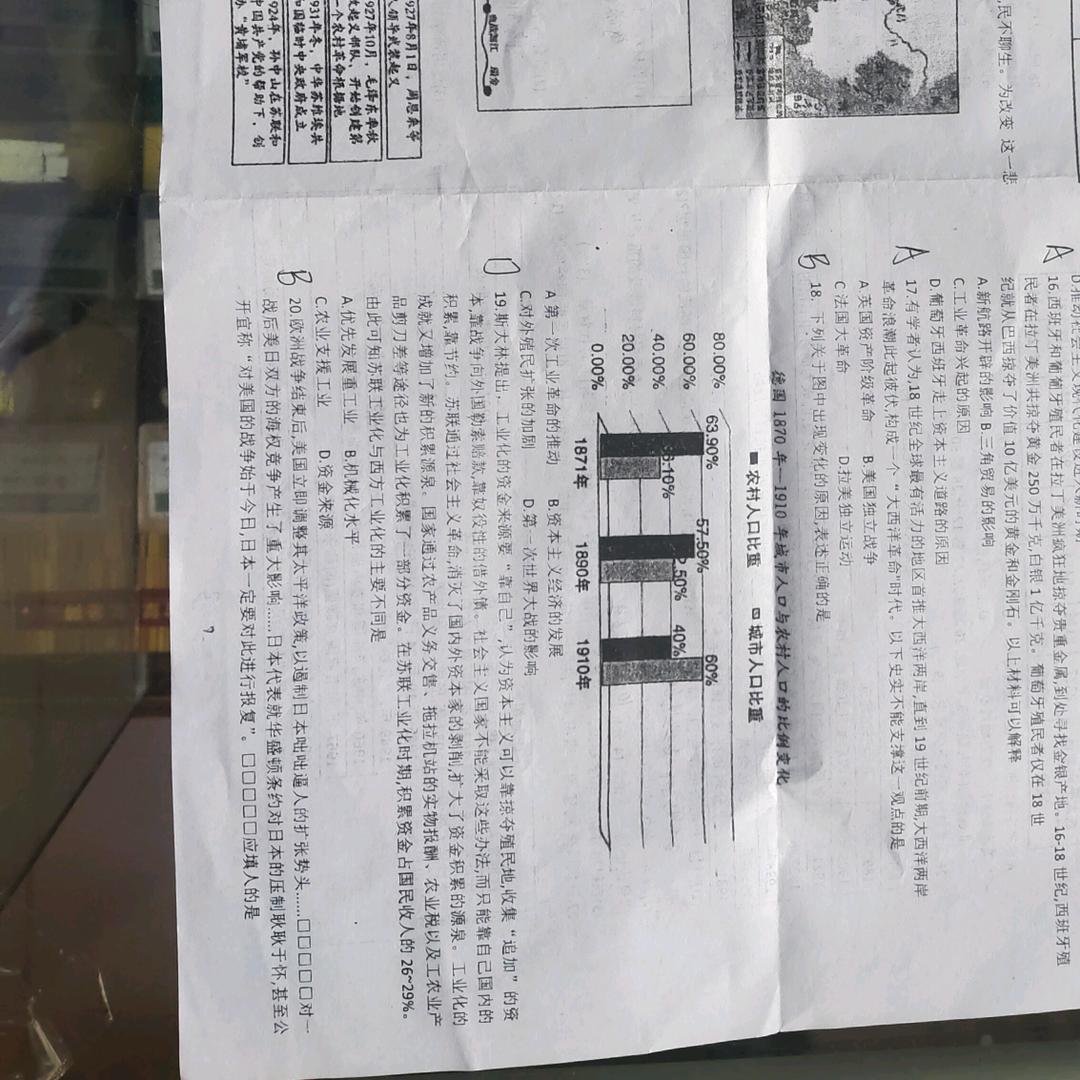 927年8月1日，周恩来等
人领导武装起义
927年10月，毛泽东率秋
收起义部队，开始创建第
一个农村革命根据地
931年冬，中华苏维埃共
和国临时中央政府成立
924年，孙中山在苏联和
中国共产党的帮助下，创
办“黄埔军校”
民不聊生。为改变 这一悲
A
16.西班牙和葡萄牙殖民者在拉丁美洲疯狂地掠夺贵重金属,到处寻找金银产地。16-18世纪,西班牙殖
民者在拉丁美洲共掠夺黄金250万千克,白银1亿千克。葡萄牙殖民者仅在18世
纪就从巴西掠夺了价值10亿美元的黄金和金刚石。以上材料可以解释
A.新航路开辟的影响 B.三角贸易的影响
C.工业革命兴起的原因
D.葡萄牙西班牙走上资本主义道路的原因
A
17.有学者认为,18世纪全球最有活力的地区首推大西洋两岸,直到19世纪前期,大西洋两岸
革命浪潮此起彼伏,构成一个“大西洋革命”时代。以下史实不能支撑这一观点的是
A英国资产阶级革命 B.美国独立战争
C法国大革命 D.拉美独立运动
B
18. 下列关于图中出现变化的原因,表述正确的是
德国 1870年—1910年城市人口与农村人口的比例变化
■农村人口比重 城市人口比重
80.00%
60.00%
40.00%
20.00%
0.00%
63.90%
57.50%
40%
60%
1871年 1890年 1910年
A 第一次工业革命的推动 B.资本主义经济的发展
C.对外殖民扩张的加剧 D.第一次世界大战的影响
D
19.斯大林提出，工业化的资金来源要“靠自己”,认为资本主义可以靠掠夺殖民地,收集“追加”的资
本,靠战争向外国勒索赔款,靠奴役性的借外债。社会主义国家不能采取这些办法,而只能靠自己国内的
积累,靠节约。苏联通过社会主义革命,消灭了国内外资本家的剥削,扩大了资金积累的源泉。工业化的
成就又增加了新的积累源泉。国家通过农产品义务交售、拖拉机站的实物报酬、农业税以及工农业产
品剪刀差等途径也为工业化积累了一部分资金。在苏联工业化时期,积累资金占国民收入的26~29%。
由此可知苏联工业化与西方工业化的主要不同是
A.优先发展重工业 B.机械化水平
C.农业支援工业 D资金来源
B
20.欧洲战争结束后,美国立即调整其太平洋政策,以遏制日本咄咄逼人的扩张势头……□□□□□对一
战后美日双方的海权竞争产生了重大影响……日本代表就华盛顿条约对日本的压制耿耿于怀,甚至公
开宣称“对美国的战争始于今日,日本一定要对此进行报复”。□□□□□应填人的是